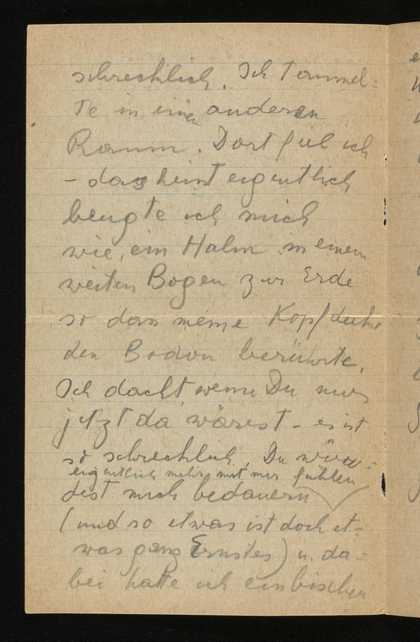 schrecklich. Ich taumel-
te in einen anderen
Raum. Dort fiel ich
– das heist eigentlich
beugte ich mich
wie ein Halm in einem
weiten Bogen zur Erde
so dass meine Kopfdecke
den Boden berührte.
Ich dacht, wenn Du nur
jetzt da wärest – es ist
so schrecklich, Du wür-
eigentlich mehr mit mir fühlen
dest mich bedauern
(und so etwas ist doch et-
was ganz Ernstes) u. da-
bei hatte ich ein bischen